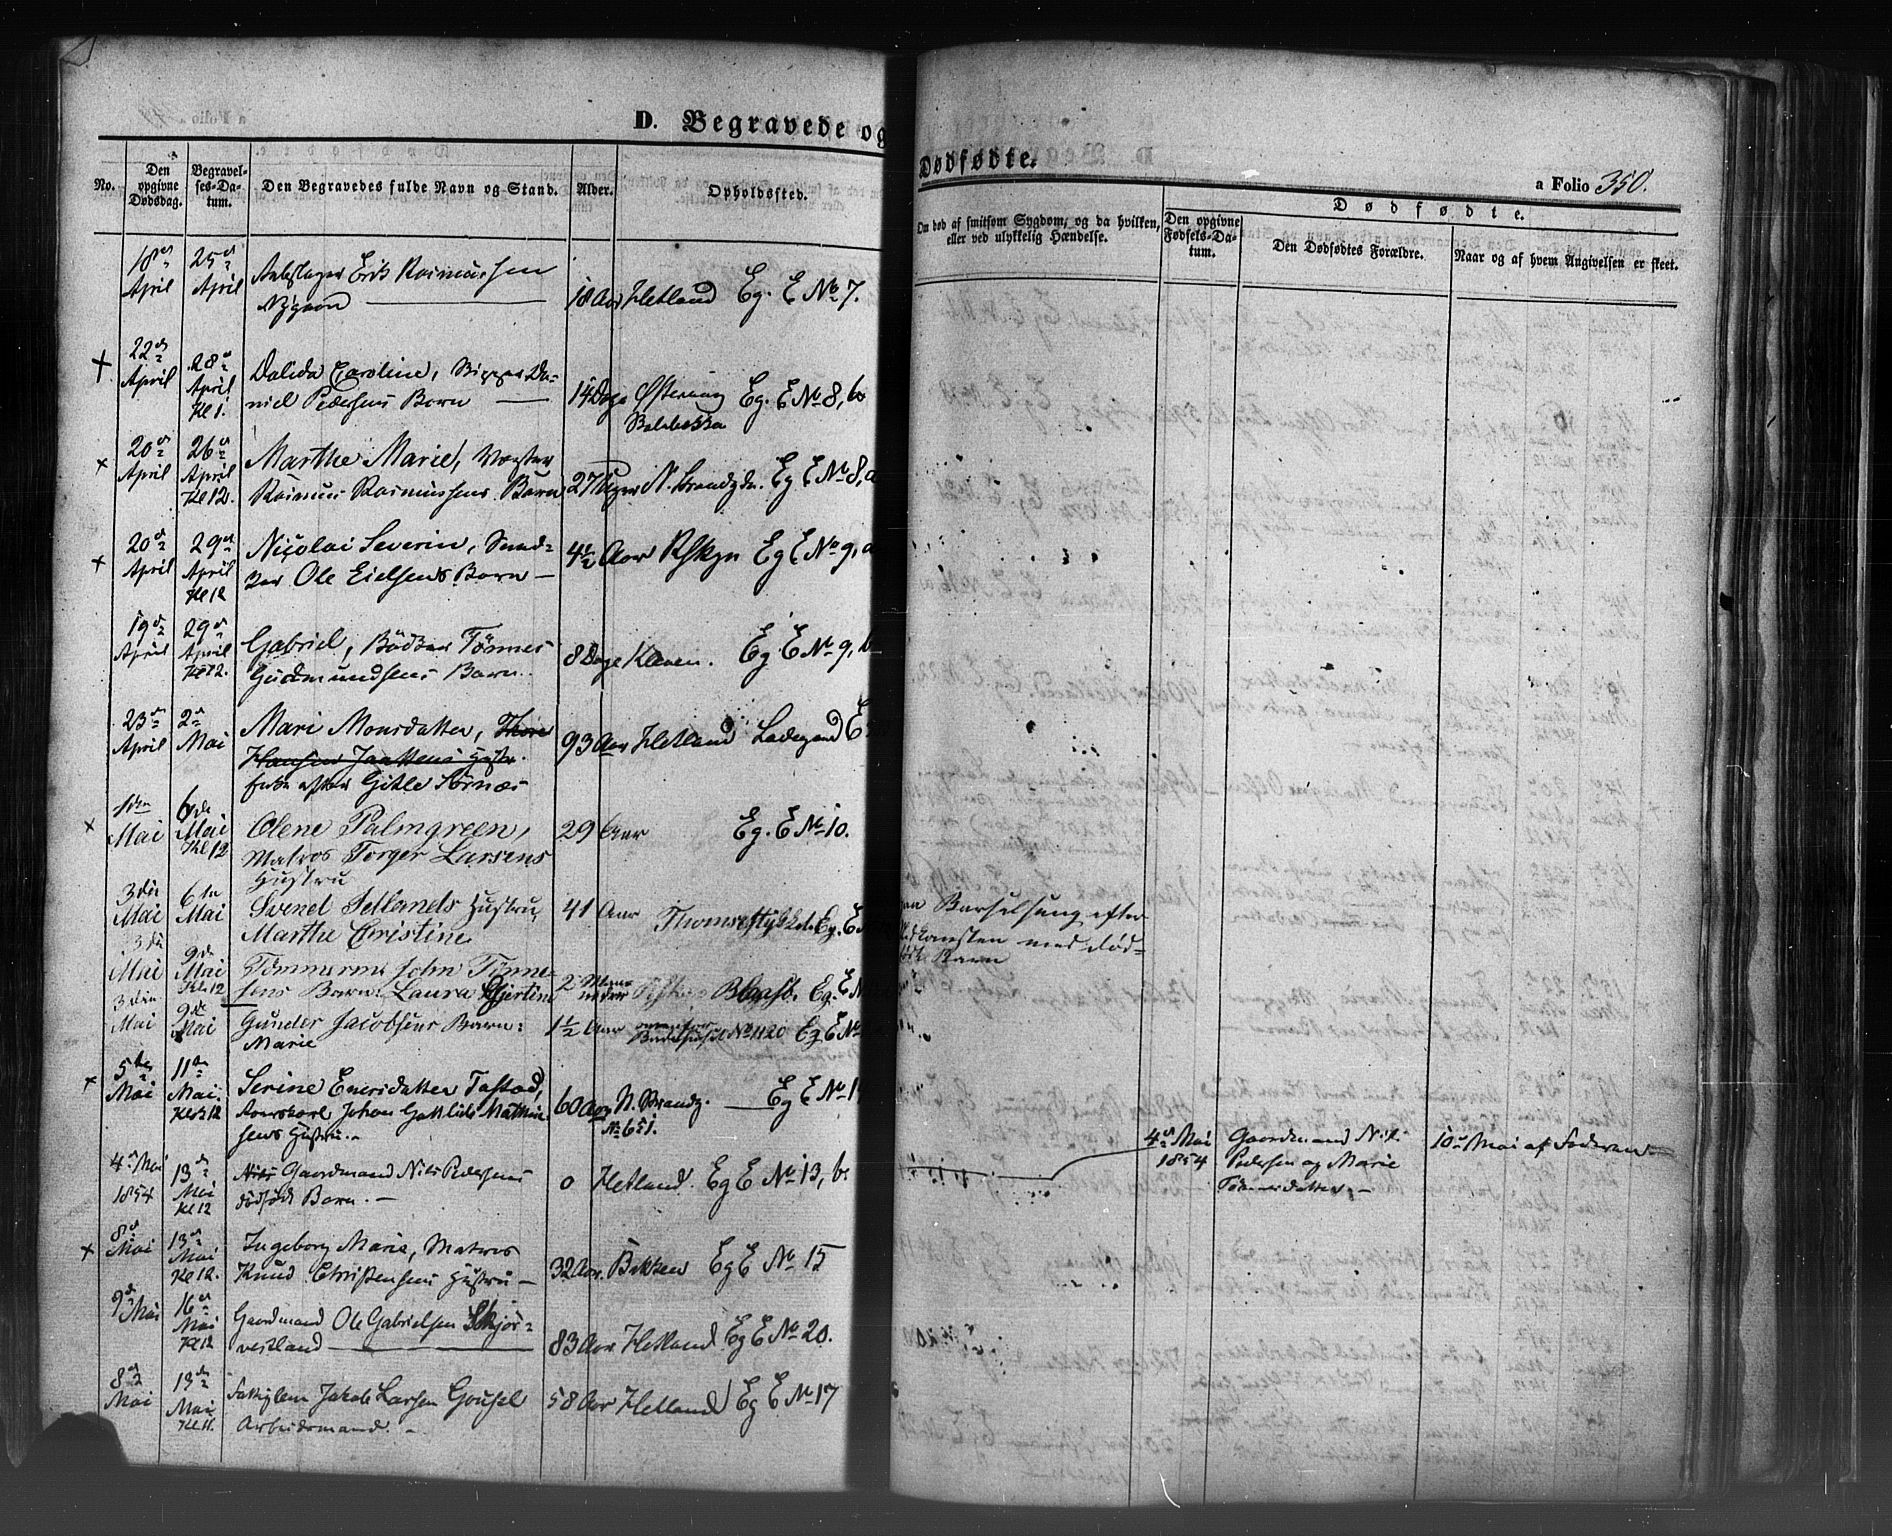 D. Begravede og
Dødfødte.
a Folio 350.
No.
Den opgivne Dødsdag.
Begravelses-Datum.
Den Begravedes fulde Navn og Stand.
Alder.
Opholdssted.
Om død af smitsom Sygdom, og da hvilken,
eller ved ulykkelig Hændelse.
Dødfødte.
Den opgivne Fødsels-Datum.
Den Dødfødtes Forældre.
Naar og af hvem Angivelsen er skeet.
18de April 25de April Erik Rasmussen
18 Aar Hetland Eg. E No 7.
22de April 28de April Kl 1. Dalida Caroline, Da-
niel Pedersens Barn 14 Dage Østervaag Eg. E No 8, b
20de April 26de April Kl 12. Marthe Marie,
Rasmus Rasmussens Barn 27 N. Brandgd. Eg E No 8, a
20de April 29de April Kl 12 Nicolai Severin, Sned-
ker Ole Eielsens Barn 4½ Aar Eg E No 9, a
19de April 29de April Kl 12. Gabriel, Bödker Tönnes
Gudmundsens Barn. 8 Dage Kleven. Eg. E No 9, b
23de April 2de Mai Mari Monsdatter, Thore
Hansen Jaattens Hustr.
Enke efter Gitle Sörnæs 93 Aar Hetland Ladegaard E
1den Mai 6de Mai Kl 12 Olene Palmgreen,
Matros Torger Larsens
Hustru 29 Aar Eg. E No 10.
3die Mai 6te Mai Svend Setlands Hustru,
Marthe Christine 41 Aar Eg. E
Barselsung efter
med död-
Barn
3die Mai 9de Mai Kl. 12 Tömmerm John Tönne-
sens Barn: Laura Gjertine 2 Maaneder Blaasb. Eg. E
3die Mai 9de Mai Gunder Jacobsens Barn:
Marie 1½ Aar No 1120 Eg E No
5te Mai 11te Mai. Kl 12 Serine Enersdatter Tastad,
Johan Gottlieb Mathie-
sens Hustru.- 60 Aar N. Brandg. No 651. Eg E No 1
4de Mai 1854 13de Mai Kl 12 Nils Gaardmand Nils Pedersens
dödfödt Barn. - 0 Hetland. Eg E No 13, b
4de Mai 1854 Gaardmand Nils
Pedersen og Marie
Tönnesdatter. -
10de Mai af Faderen
8de Mai 13de Mai Kl 12. Ingeborg Marie, Matros
Knud Christensens Hustru - 32 Aar. Bakken Eg E No 15
9de Mai 16de Mai Kl 12 Gaardmand Ole Gabrielsen Skjör-
vestland 83 Aar Hetland Eg E No 20.
8de Mai 13de Mai Kl 11. Fattiglem Jakob Larsen Gousel
Arbeidsmand. - 58 Aar Hetland Eg E No 17